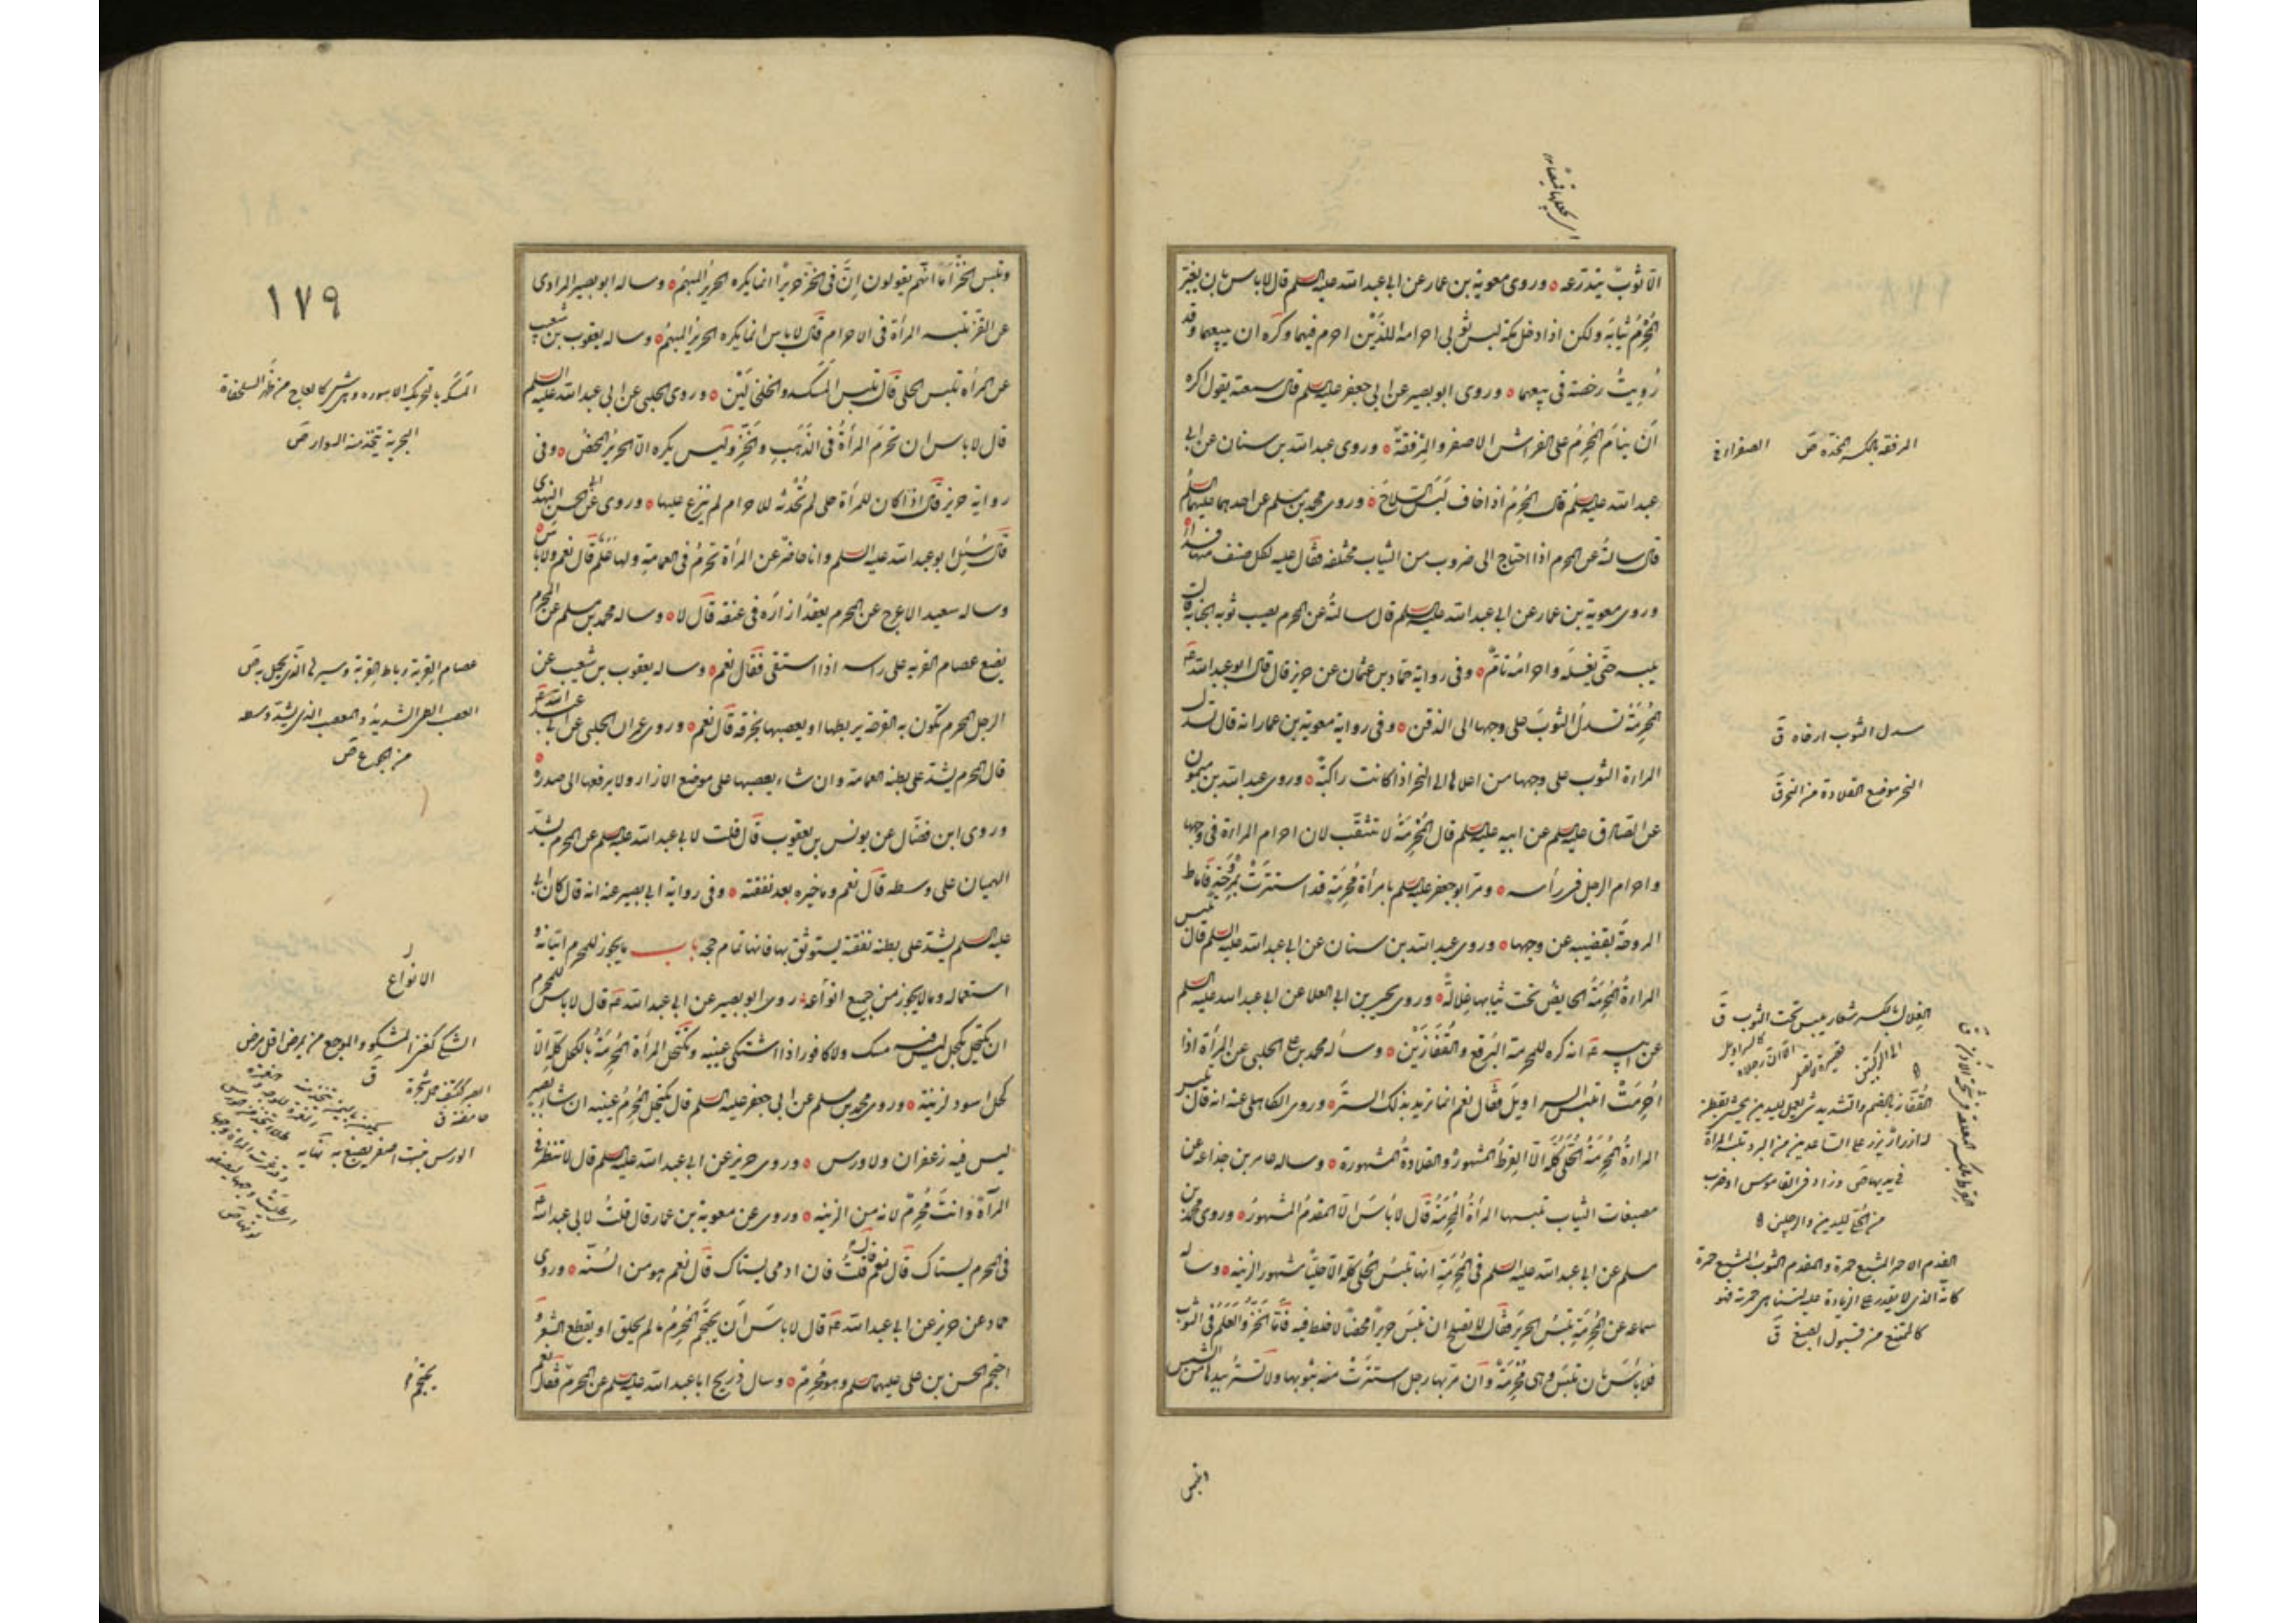 الا ثوب يتدرعه وروى معوية بن عمار عن ابى عبد الله عليه السلم قال لا باس بان يغير
المُحْرِمُ ثيابَه ولكن اذا دخل مكة لبس ثوبى احرامه اللذين احرم فيهما وكره ان يبيعهما وقد
رُوِيَتْ رخصة فى بيعهما وروى ابو بصير عن ابى جعفر عليه السلم قال سمعته يقول اكره
اَن ينامَ المُحْرِمُ على الفراش الاصفر والمِرْفقة وروى عبد الله بن سنان عن ابى
عبد الله عليه السلم قال المُحْرِمُ اذا خاف لَبِسَ السلاحَ وروى محمد بن مسلم عن احدهما عليهما السلم
قال سالته عن المحرم اذا احتاج الى ضروب من الثياب مختلفه فقال عليه لكل صنف منها فداء
وروى معوية بن عمار عن ابى عبد الله عليه السلم قال سالته عن المحرم يصيب ثوبه الجنابة قال لا
يلبسه حتى يغسله واحرامه تام وفى رواية حماد بن عثمان عن حريز قال قال ابو عبد الله ع
المُحْرِمَة تسدلُ الثوبَ على وجهها الى الذقن وفى رواية معوية بن عمار انه قال تسدل
المراة الثوب على وجهها من اعلاها الى النحر اذا كانت راكبة وروى عبد الله بن ميمون
عن الصادق عليه السلم عن ابيه عليه السلم قال المُحْرِمَةُ لا تتنقّب لان احرام المراة فى وجهها
واحرام الرجل فى رأسه ومر ابو جعفر عليه السلم بامرأة مُحْرِمَةٍ قد استترت بمروحة فاماط
المروحة بقضيبه عن وجهها وروى عبد الله بن سنان عن ابى عبد الله عليه السلم قال تلبس
المراةُ المُحْرِمَةُ الحائض تحت ثيابها غِلالةً وروى يحيى بن ابى العلا عن ابى عبد الله عليه السلم
عن ابيه ع انه كره للمحرمة البُرْقع والقُفّازَيْن وسأله محمد بن على الحلبى عن المرأة اذا
اَحْرَمَتْ اتلبس السراويل فقال نعم انما تريد بذلك الستر وروى الكاهلى عنه انه قال تلبس
المراةُ المُحْرِمَةُ الحُلىَّ كلّه الا القُرْطَ المشهورَ والقلادةَ المشهورة وساله عامر بن جذاعه عن
مصبغات الثياب تلبسها المرأةُ المُحْرِمَةُ قال لا باسَ الا المُفْدَمُ المشهورُ وروى محمد بن
مسلم عن ابى عبد الله عليه السلم فى المُحْرِمَةِ انها تلبَسُ الحُلِىَّ كلّه الا حَلْيًا مشهور الزينه وساله
سماعه عن المُحْرِمَةِ تلبَسُ الحريرَ فقال لا يصلح ان تلبَسَ حريرًا محضًا لا خلط فيه فاما الخزُّ والعَلَمُ فى الثوب
فلا باسَ بان تلبَسَ وهى مُحْرِمَةٌ وان مر بها رجل استترت منه بثوبها ولا تستتر بيدها من الشمس
وتلبس
المرفقة بالكسر المخدة ص
سدل الثوب ارخاه ق
النحر موضع القلادة من النحر ق
الغلالة بالكسر شعار يلبس تحت الثوب ق
القفاز بالضم والتشديد شئ يعمل لليدين يحشى بقطن
له ازرار يزر على الساعدين من البرد تلبسه المراة
فى يديها ص وزاد فى القاموس او ضرب
من الحلى لليدين والرجلين
الفدم الاحمر المشبع حمرة والمفدم الثوب المشبع حمرة
كانه الذى لا يقدر على الزيادة عليه لتناهى حمرته فهو
كالممتنع من قبول الصبغ ق
١٧٩
وتلبس الخزَّ اما انّهم يقولون اِنَّ فى الخز حريرًا انما يكره الحريرُ المبهمُ وساله ابو بصير المرادى
عن القز تلبسه المرأة فى الاحرام قال لا باس انما يكره الحريرُ المبهمُ وساله يعقوب بن شعيب
عن المرأه تلبس الحلى قال تلبس المَسَكَ والخلخالَيْن وروى الحلبى عن ابى عبد الله عليه السلم
قال لا باس ان تحرم المرأةُ فى الذَّهَبِ والخَزِّ وليس يكره الا الحريرُ المحضُ وفى
رواية حريز قال اذا كان للمرأة حلى لم تُحْدِثه للاحرام لم ينزع عليها وروى عن ابى الحسن النهدى
قال سُئِلَ ابو عبد الله عليه السلم وانا حاضر عن المرأة تحرمُ فى العمامة ولها عَلَم قال نعم ولا باس
وساله سعيد الاعرج عن المحرم يعقد ازارَه فى عنقه قال لا وساله محمد بن مسلم عن المحرم
يضع عصام القربه على راسه اذا استقى فقال نعم وساله يعقوب بن شعيب عن
الرجل المحرم تكون به القرحة يربطها او يعصبها بخرقه قال نعم وروى عمران الحلبى عن ابى عبد الله ع
قال المحرم يشد على بطنه العمامة وان شاء يعصبها على موضع الازار ولا يرفعها الى صدره
وروى ابن فضال عن يونس بن يعقوب قال قلت لابى عبد الله عليه السلم عن المحرم يشد
الهميان على وسطه قال نعم وما خيره بعد نفقته وفى رواية ابى بصير عنه انه قال كان ابى
عليه السلم يشد على بطنه نفقته يستوثق بها فانها تمام حجه باب ما يجوز للمحرم اتيانه و
استعماله وما لا يجوز من جميع انواعه روى ابو بصير عن ابى عبد الله ع قال لا باس للمحرم
ان يكتحل بكحل ليس فيه مسك ولا كافور اذا اشتكى عينيه وتكتحل المرأة المُحْرِمَةُ بالكحل كلِّه الا
كحل اسود لزينة وروى محمد بن مسلم عن ابى جعفر عليه السلم قال يكتحل المُحْرِمُ عينيه ان شاء بصبر
ليس فيه زعفران ولا ورس وروى حريز عن ابى عبد الله عليه السلم قال لا تنظر فى
المرآة وانت مُحْرِمٌ لانه من الزينه وروى عن معوية بن عمار قال قلتُ لابى عبد الله ع
فى المحرم يستاك قال نعم قال قلتُ فان ادمى يستاك قال نعم هو من السُنّة وروى
حماد عن حريز عن ابى عبد الله ع قال لا باسَ اَن يحتجَمَ المُحْرِمُ ما لم يحلق او يقطع الشعر و
احتجم الحسن بن على عليهما السلم وهو مُحْرِمٌ وسال ذريح ابا عبد الله عليه السلم عن المحرم فقال نعم
البحرية يتخذ منه السوار ص
عصام القربة رباط القربة وسيرها الذى تحمل به ص
العصب الطى الشديد
من الجوع ص
الانواع
الورس نبت اصفر يصبغ به
يحتجم